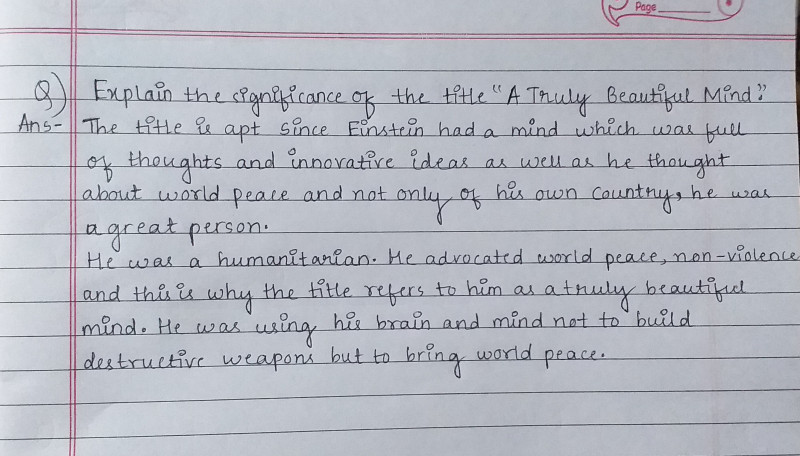 Page
Q) Explain the significance of the title "A Truly Beautiful Mind".
Ans- The title is apt since Einstein had a mind which was full
of thoughts and innovative ideas as well as he thought
about world peace and not only of his own country, he was
a great person.
He was a humanitarian. He advocated world peace, non-violence
and this is why the title refers to him as a truly beautiful
mind. He was using his brain and mind not to build
destructive weapons but to bring world peace.